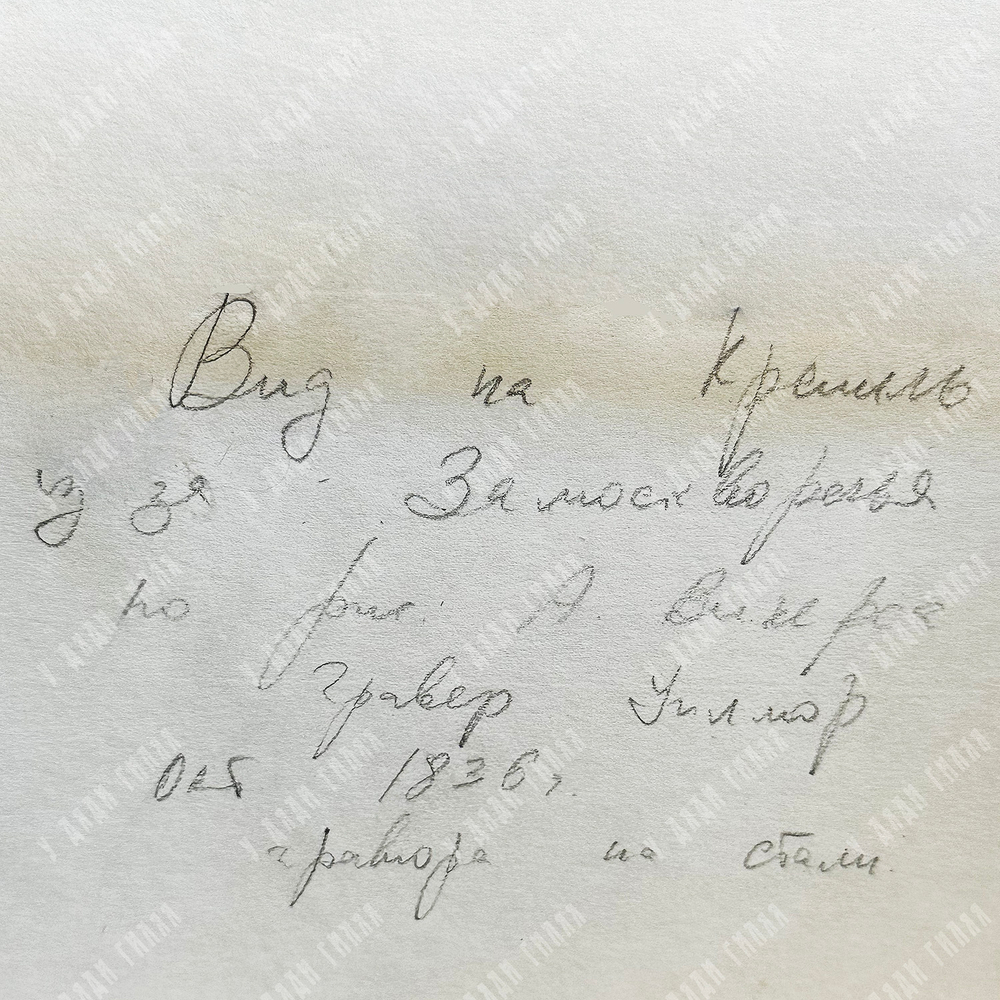 Вид на Кремль
из за Замоскворечья
по рис. А. Викерса
гравер Уилмор
Окт 1836г.
гравюра на стали.